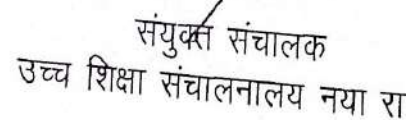 संयुक्त संचालक
उच्च शिक्षा संचालनालय नया रा